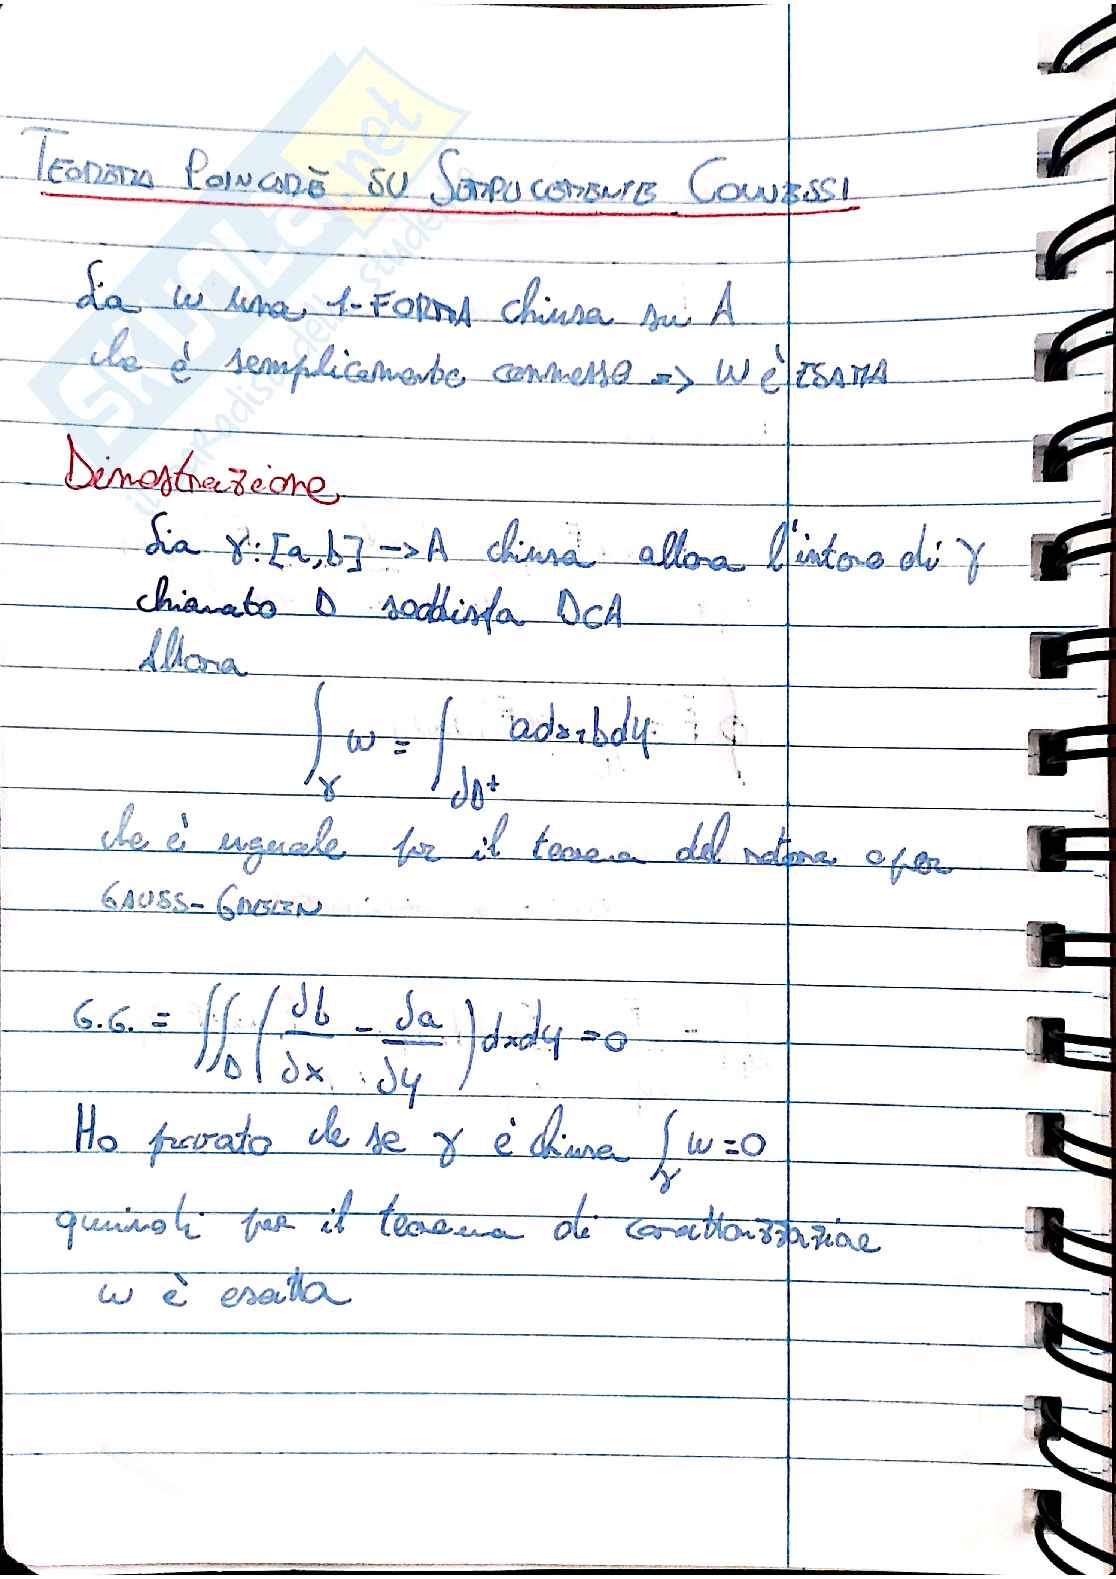 TEOREMA POINCARÈ SU SEMPLICEMENTE CONNESSI
Sia ω una 1-FORMA chiusa su A
che è semplicemente connesso => ω è ESATTA
Dimostrazione
Sia γ: [a,b] -> A chiusa allora l'interno di γ
chiamato D soddisfa D⊂A
Allora
∫_γ ω = ∫_∂D⁺ adx+bdy
che è uguale per il teorema del rotore o per
GAUSS-GREEN
G.G. = ∬_D (∂b/∂x - ∂a/∂y) dxdy = 0
Ho provato che se γ è chiusa ∫_γ ω=0
quindi per il teorema di caratterizzazione
ω è esatta
SKUOLA.net
il paradiso dello studente